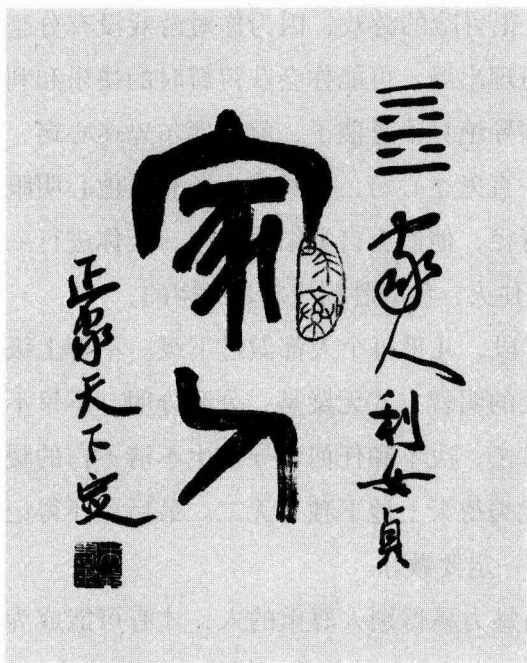 家人利女貞
家人
正家天下定